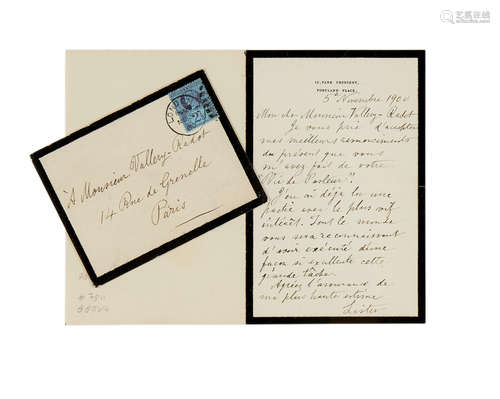 12, PARK CRESCENT,
PORTLAND PLACE.
5 Novembre 1900
Mon cher Monsieur Vallery-Radot
Je vous prie d'accepter
mes meilleurs remerciments
du présent que vous
m'avez fait de votre
"Vie de Pasteur".
J'en ai déjà lu une
partie avec le plus vif
intérêt. Tout le monde
vous sera reconnaissant
d'avoir exécuté d'une
façon si excellente cette
grande tâche.
Agréez l'assurance de
ma plus haute estime
Lister
À Monsieur Vallery-Radot
14 Rue de Grenelle
Paris